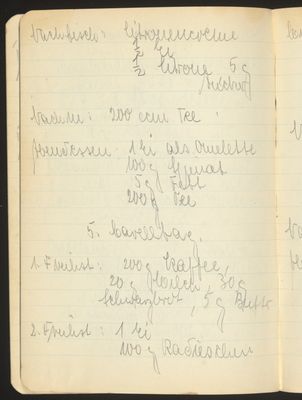 Nachtisch: Citronencreme
1/2 Ei
1/2 Citrone 5g
Zucker
Nachm: 200 ccm Tee
Abendessen: 1 Ei als Omelette
100g Spinat
5g Fett
200g Tee
5.
1. Frühst: 200g Kaffee,
20g Milch, 30g
Schwarzbrot, 5g Butter
2. Frühst: 1 Ei
100g Radieschen